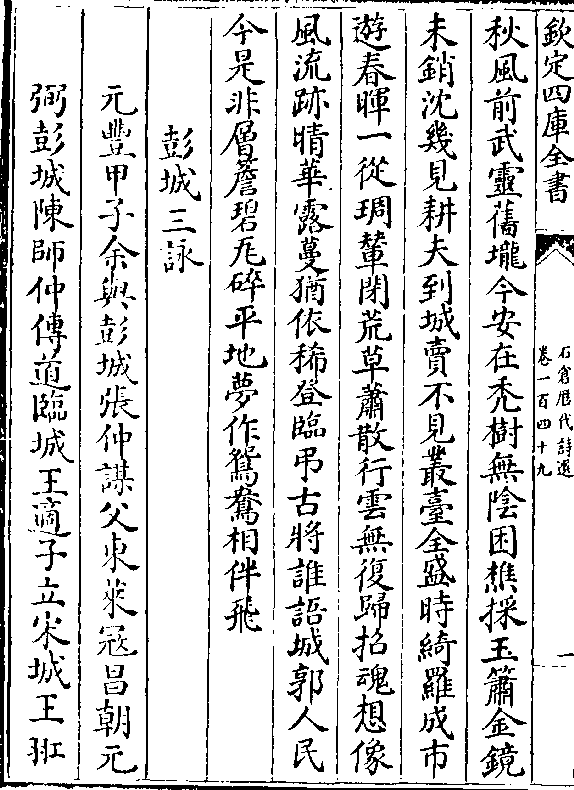 欽定四庫全書
石倉歷代詩選
卷一百四十九
一
秋風前武靈舊壠今安在禿樹無陰困樵採玉簫金鏡
未銷沈幾見耕夫到城賣不見叢臺全盛時綺羅成市
遊春暉一從琱輦閉荒草蕭散行雲無復歸招魂想像
風流跡晴華露蔓猶依稀登臨弔古將誰語城郭人民
今是非層簷碧瓦碎平地夢作鴛鴦相伴飛
彭城三詠
元豐甲子余與彭城張仲謀父東萊冦昌朝元
弼彭城陳師仲傳道臨城王適子立宋城王𤣱